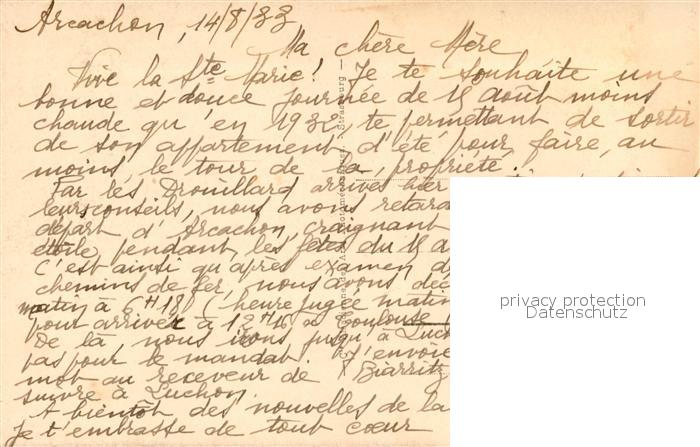 Arcachon, 14/8/33
Ma chère Mère
Vive la Ste Marie! Je te souhaite une
bonne et douce journée de 15 août moins
chaude qu'en 1932, te permettant de sortir
de son appartement d'été pour faire, au
moins, le tour de la propriété.
Par les Drouillard arrivés hier
leurs conseils, nous avons retard
départ d'Arcachon, craignant
étoile pendant les fêtes du 15 a
C'est ainsi qu'après examen d
chemins de fer, nous avons déc
matin à 6H18 (l'heure jugée matin
pour arriver à 12H15 à Toulouse
De là, nous irons jusqu'à Luch
pas pour le mandat. J'envoie
mot au receveur de Biarritz
suivre à Luchon.
A bientôt des nouvelles de la
Je t'embrasse de tout coeur
Strasbourg
privacy protection
Datenschutz